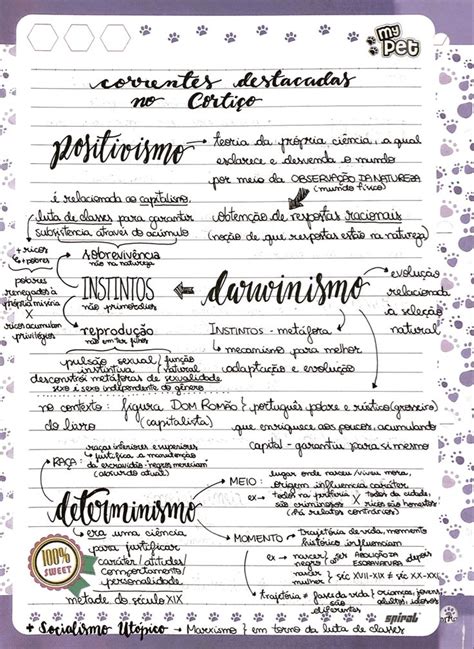 my Pet
correntes destacadas
no Cortiço
positivismo
teoria da própria ciência, a qual
esclarece e desvenda o mundo
por meio da OBSERVAÇÃO DA NATUREZA
(mundo físico)
obtenção de respostas racionais
(noção de que respostas estão na natureza)
é relacionada ao capitalismo,
luta de classes para garantir
subsistência através do acúmulo
+ ricos
+ pobres
sobrevivência
não na natureza
pobres
renegados à
própria miséria
X
ricos acumulam
privilégios
INSTINTOS
não primordiais
reprodução
não em ter filhos
darwinismo
evolução
relacionada
à seleção
natural
INSTINTOS - metáfora
mecanismo para melhor
adaptação e evolução
pulsão sexual / função
instintiva natural
desconstrói metáforas de sexualidade
sexo é sexo independente do gênero
no contexto: figura DOM ROMÃO } português pobre e rústico (grosseiro)
do livro (capitalista) que enriquece aos poucos, acumulando
capital - garantiu para si mesmo
RAÇA:
raças inferiores e superiores
justifica a manutenção
da escravidão - negros mereciam
(absurdo atual)
MEIO:
lugar onde nasceu / viveu mora,
origem influencia caráter
ex → todos na periferia X todos da cidade,
são criminosos X ricos são honestos
(há relatos contrários)
determinismo
era uma ciência
para justificar
caráter / atitudes /
comportamento /
personalidade
metade do século XIX
MOMENTO
trajetória de vida, momento
histórico influenciam
ex → nascer negro antes ABOLIÇÃO DA ESCRAVIDÃO depois
nascer mulher } séc XVII-XIX ≠ séc XX-XXI
trajetória ≠ fases da vida } crianças, jovens,
são diferentes adultos, idosos
100%
SWEET
spiral
+ Socialismo Utópico → Marxismo } em torno da luta de classes